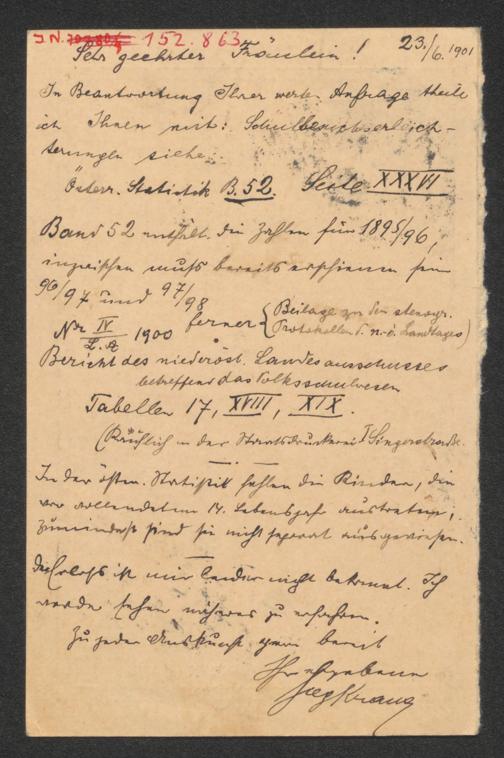 J.N. 152.863
Sehr geehrtes Fräulein! 23./6. 1901
In Beantwortung Ihrer werten Anfrage theile
ich Ihnen mit: Schulbesuchserleich-
terungen siehe:
Österr. Statistik B. 52. Seite XXXVI
Band 52 enthält die Zahlen für 1895/96,
inzwischen muß bereits erschienen sein
96/97 und 97/98
Nr. IV/L.A. 1900 ferner {Beilage zu den stenogr.
Protokollen d. n.-ö. Landtages)
Bericht des niederöst. Landesausschusses
betreffend das Volksschulwesen
Tabellen 17, XVIII, XIX.
(Käuflich in der Staatsdruckerei I Singerstraße.
In der österr. Statistik fehlen die Kinder, die
vor vollendetem 14. Lebensjahr austreten,
zumindest sind sie nicht separat ausgewiesen.
Der Erlaß ist mir leider nicht bekannt. Ich
werde sehen näheres zu erfahren.
Zu jeder Auskunft gern bereit
Ihr ergebener